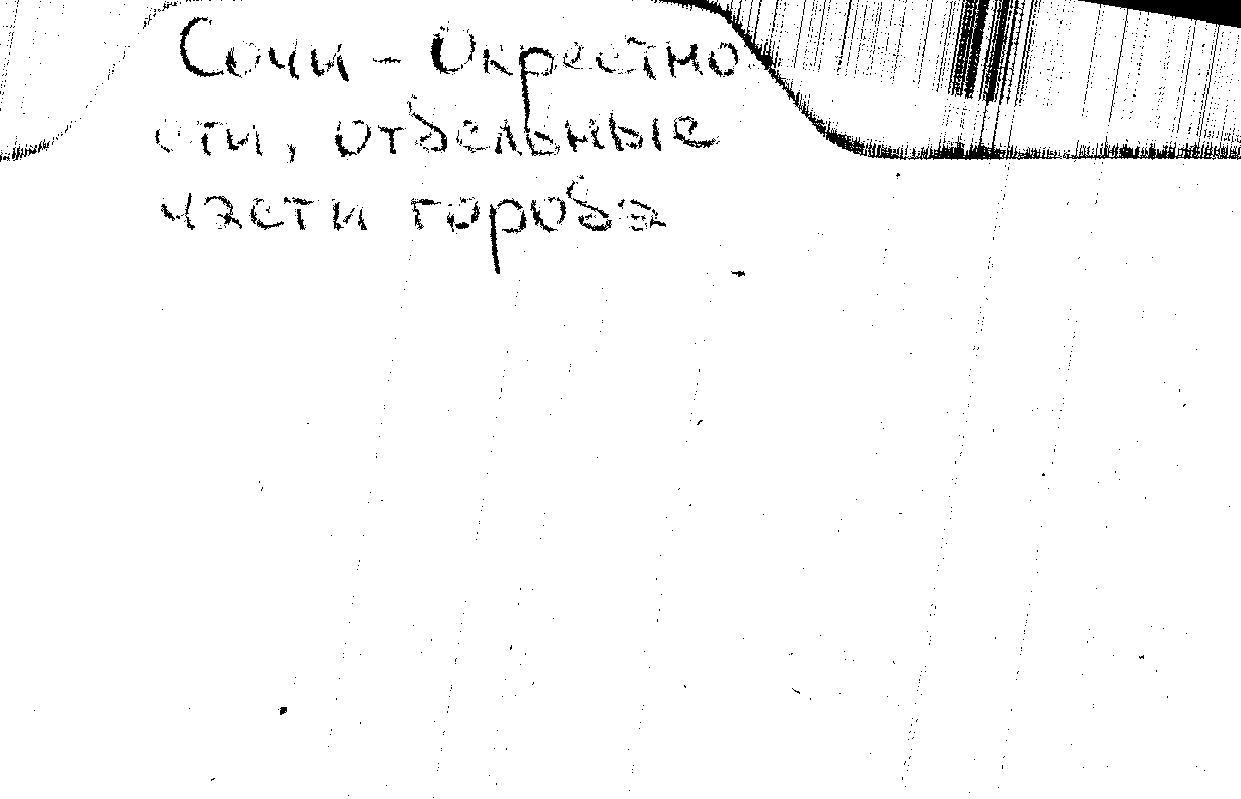 Сочи - Окрестно
сти, отдельные
части города